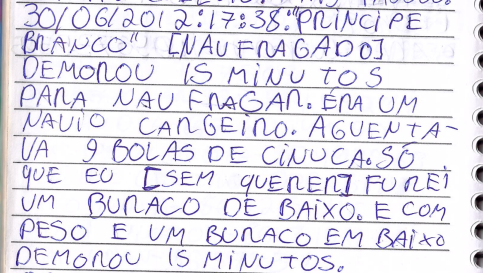 30/06/2012:17:38:"PRINCIPE
BRANCO" [NAUFRAGADO]
DEMOROU 15 MINUTOS
PARA NAUFRAGAR. ERA UM
NAVIO CARGEIRO. AGUENTA-
VA 9 BOLAS DE CINUCA. SÓ
QUE EU [SEM QUERER] FUREI
UM BURACO DE BAIXO. E COM
PESO E UM BURACO EM BAIXO
DEMOROU 15 MINUTOS.